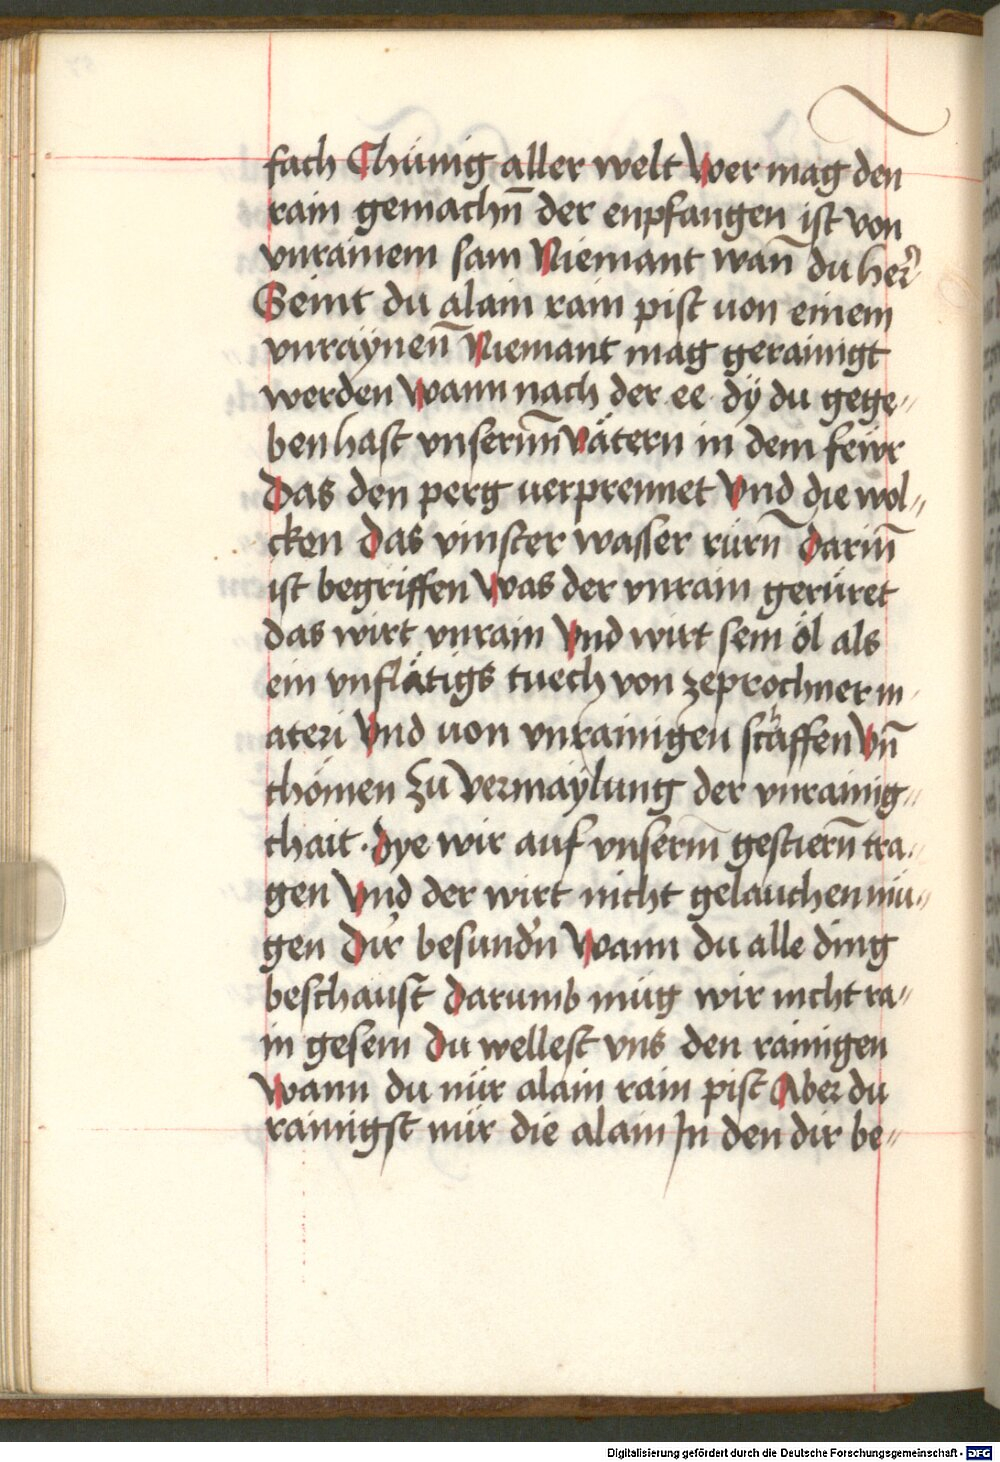 fach Chünig aller welt Wer mag den
rain gemachn̄ der enpfangen ist von
vnrainem sam Niemant wan̄ du her̄
Seint du alain rain pist von einem
vnraÿnen̄ Niemant mag gerainigt
werden Wann nach der ee dÿ du gege„
ben hast vnserm̄ Vätern in dem feẅr
Das den perg verprennet Vnd die wol„
cken Das vinster wasser rürn̄ Darin̄
ist begriffen Was der vnrain gerüret
das wirt vnrain Vnd wirt sein öl als
ein vnflätigs tuech von zeprochner m„
ateri Vnd von vnrainigen schäffen Vn̄
thömen Zu Vermäylung der vnrainig„
chait · Dye wir auf vnserm̄ gestiern̄ tra„
gen Vnd der wirt nicht gelauchen mü„
gen Dir besundn̄ Wann du alle ding
beschaust Darumb müg wir nicht ra„
in gesein Du wellest vns den rainigen
Wann du nür alain rain pist Aber du
rainigst nür die alain In den dir be„
Digitalisierung gefördert durch die Deutsche Forschungsgemeinschaft - DFG